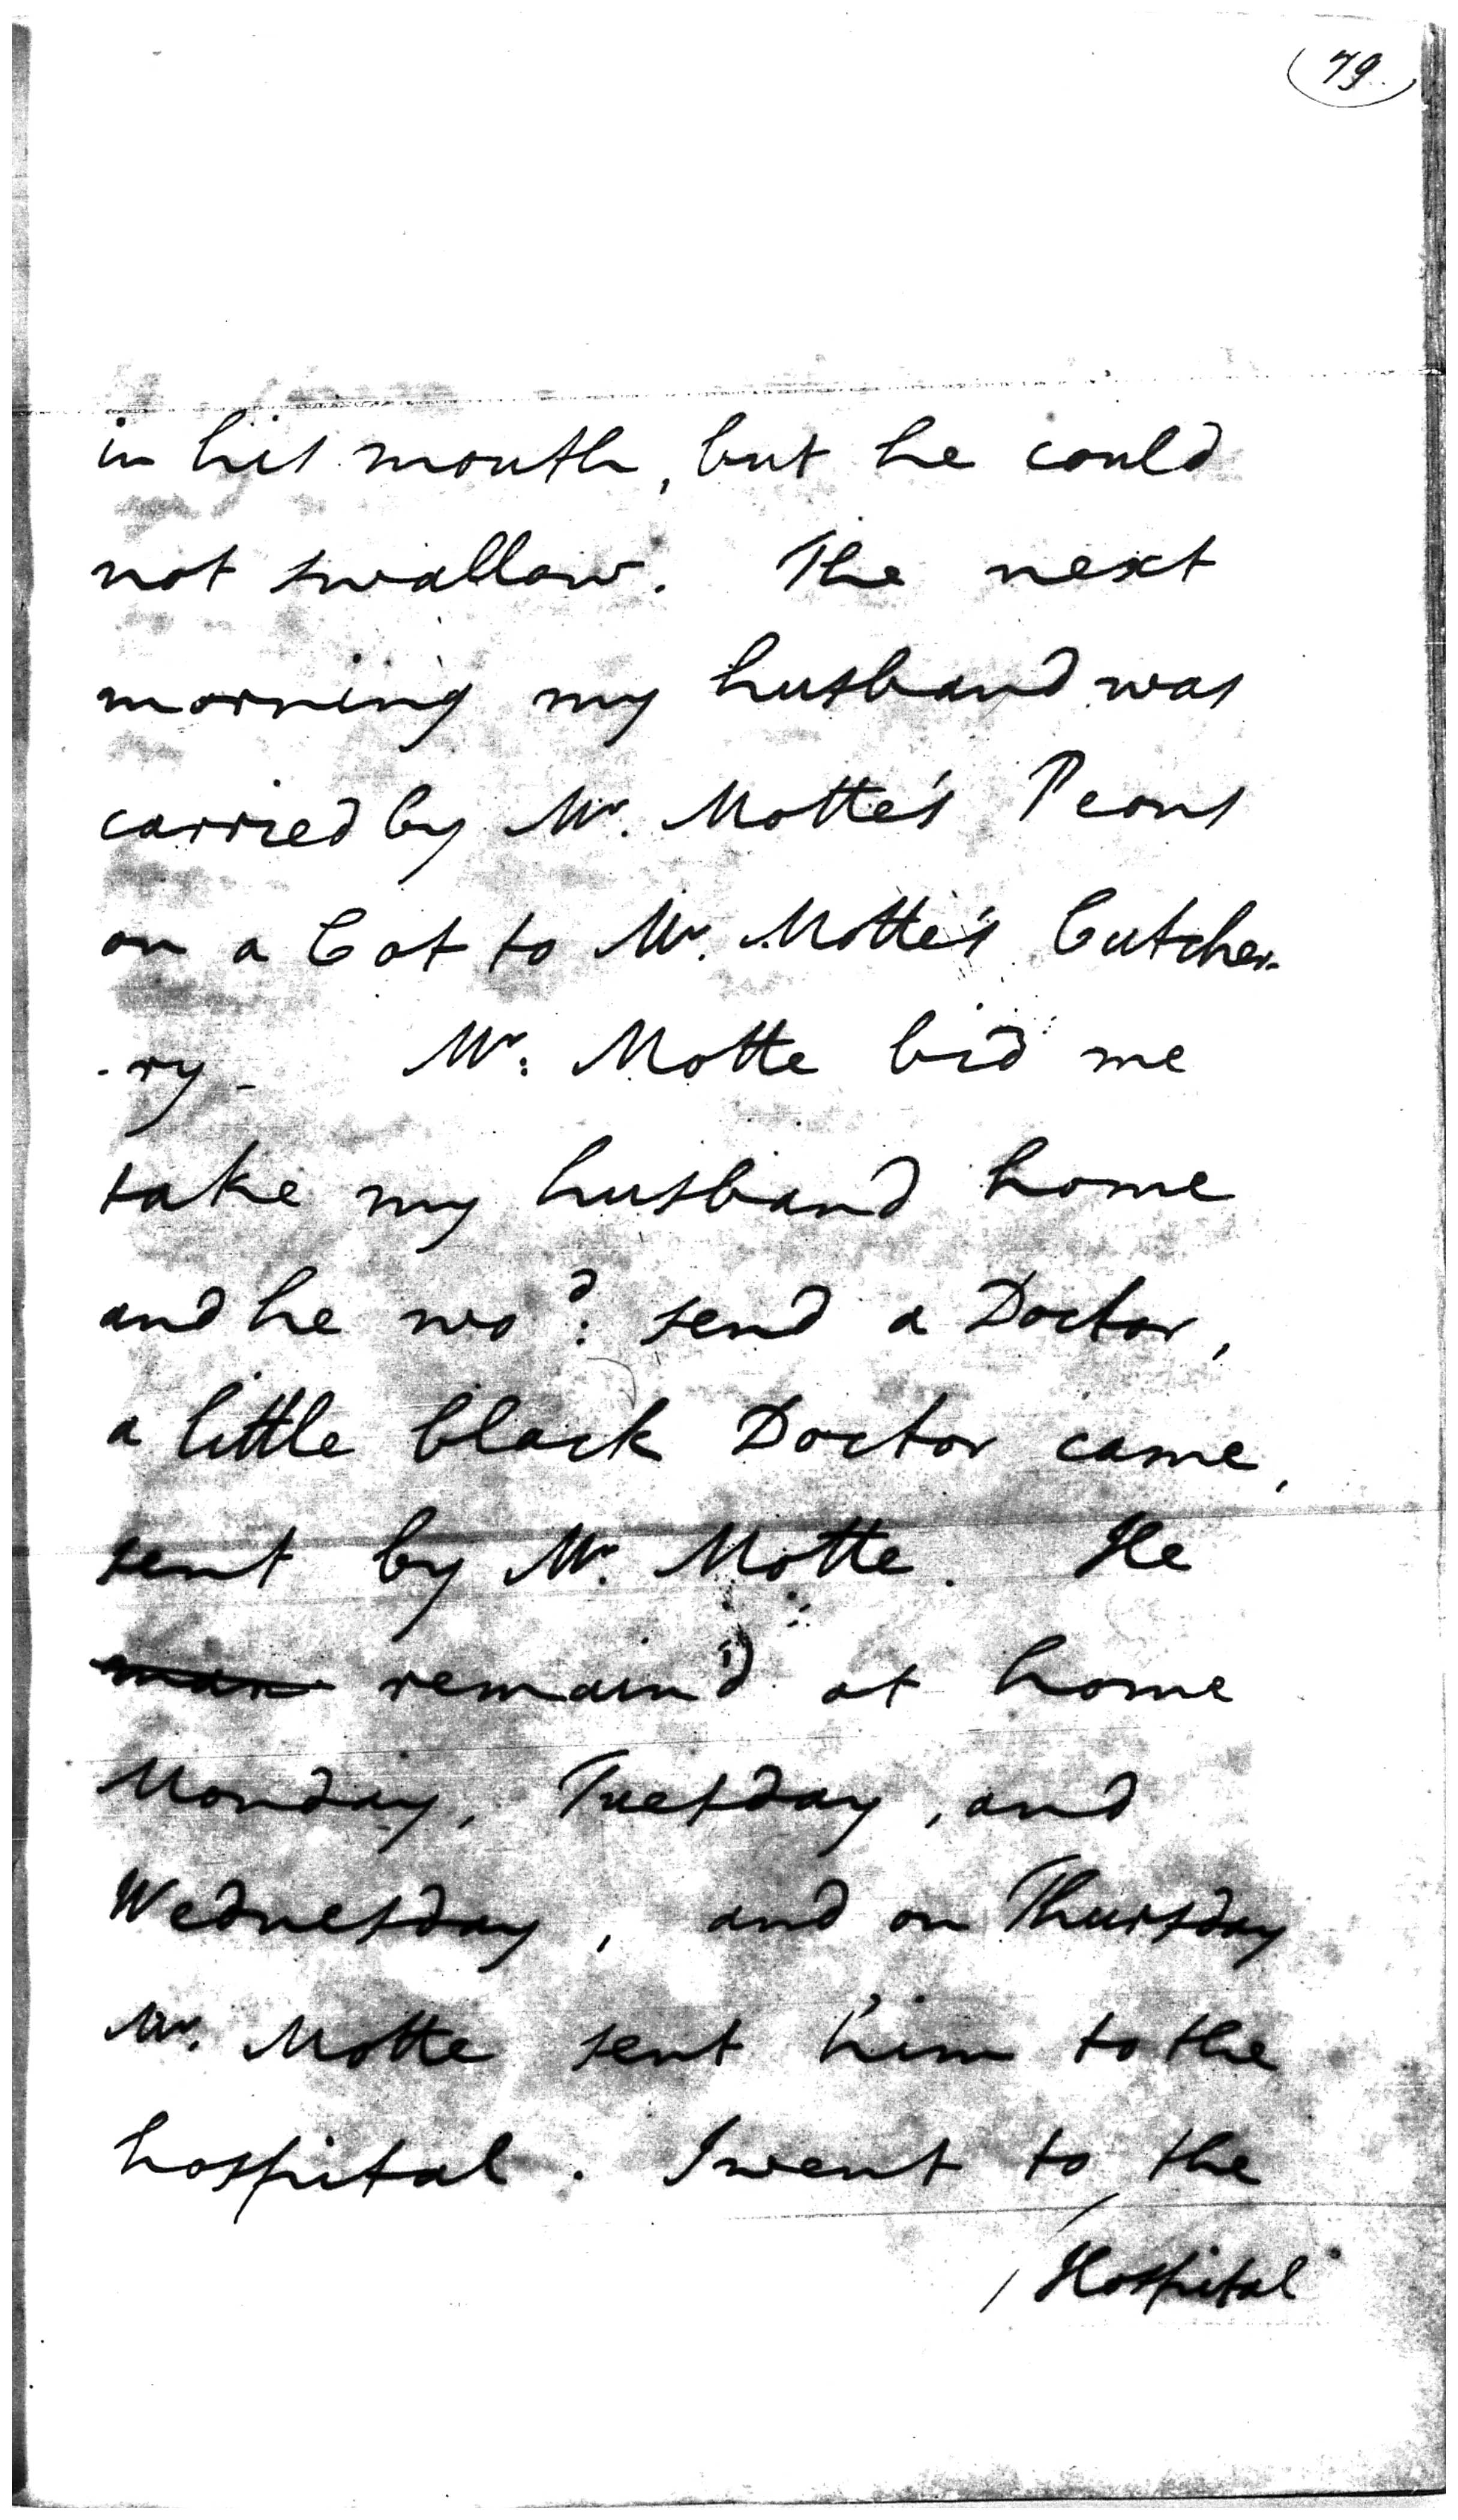 79.
in his mouth, but he could
not swallow. The next
morning my husband was
carried by Mr. Motte's Peons
on a Cot to Mr. Motte's Cutcher-
-ry - Mr: Motte bid me
take my husband home
and he wod: send a Doctor,
a little black Doctor came,
sent by Mr. Motte. He
remain'd at home
Monday, Tuesday, and
Wednesday, and on Thursday
Mr. Motte sent him to the
hospital. I went to the
/Hospital